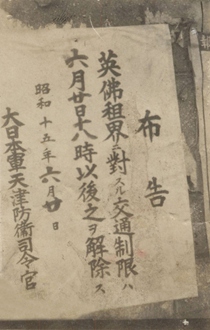 布告
英佛租界ニ對スル交通制限ハ
六月廿日十八時以後之ヲ解除ス
昭和十五年六月廿日
大日本軍天津防衛司令官